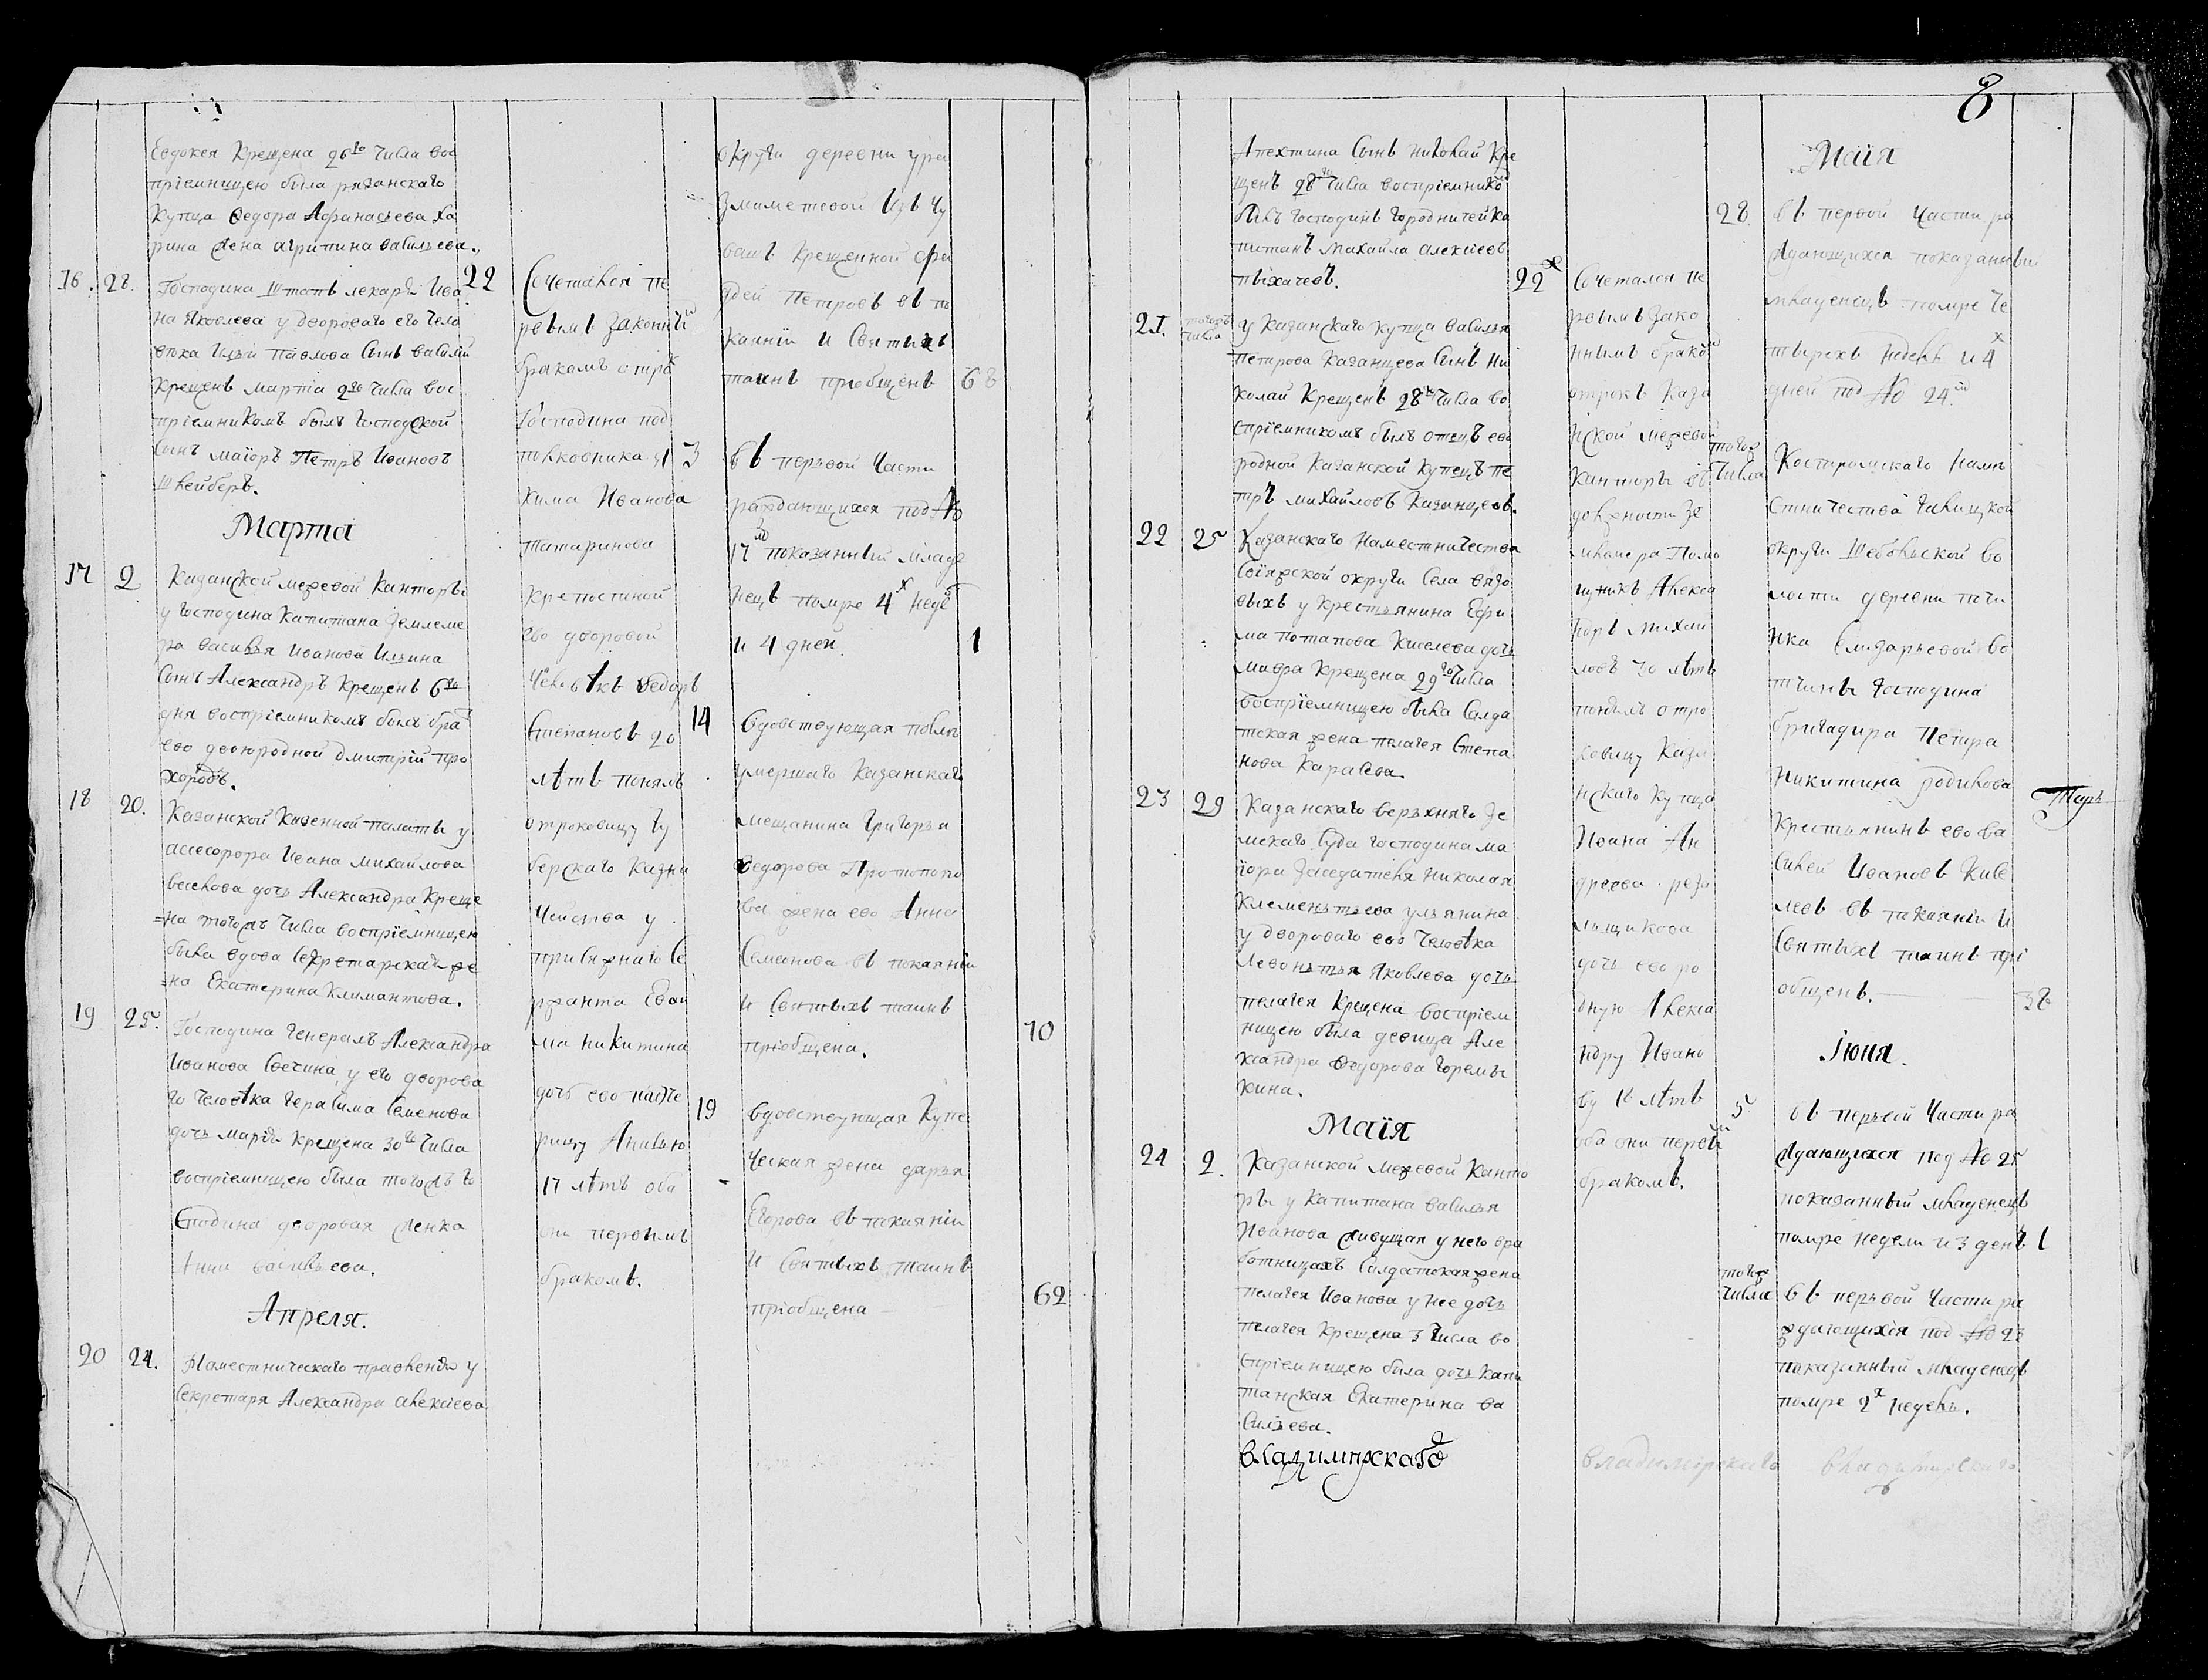 Евдокея Крещена 26го числа вос
приемницею была рязанскаго
купца Федора Афанасьева Ха
рина жена агрипина васильева.
16. 28. Господина Штапъ лекаря Ива
на Яковлева у двороваго его чело
века Ильи Павлова сынъ василий
крещенъ марта 2го числа вос
приемникомъ былъ господской
сынъ маiоръ Петръ Ивановъ
Шнейберъ.
Марта
17 2 Казанской межевой Канторы
у господина Капитана Землеме
ра василья Иванова Ильина
сынъ Александръ крещенъ 6го
дня восприемникомъ былъ братъ
ево двоюродной дмитрий про
хоровъ.
18 20. Казанской Казенной палаты у
асессорора Ивана михайлова
веселова дочь Александра креще
=на тогожъ числа восприемницею
была вдова секретарская же
=на Екатерина Климантова.
19 25. Господина генералъ Александра
Иванова Свечина у его дворова
го человѣка герасима семенова
дочь марiя крещена 30го числа
восприемницею была тогожъ го
сподина дворовая женка
Анна васильева.
Апреля.
20 24. Наместническаго правленiя у
секретаря Александра алексiева
22 Сочетался пе
рвымъ законны
бракомъ отрок
Господина под
полковника
кима Иванова
татаринова
крепостной
ево дворовой
человѣкъ Федоръ
Степановъ 20
лѣтъ понялъ
отроковицу гу
бернскаго казна
чейства у
присяжнаго се
ржанта Ефи
ма никитина
дочь ево падче
рицу Анисью
17 лѣтъ оба
они первымъ
бракомъ.
округи деревни
изъ чу
вашъ крещенной
дей Петровъ въ по
каянiи и святыхъ
таинъ приобщенъ 68
3 въ первой части
раждающихся под №
17м показанный младе
нецъ помре 4х неде
и 4 дней. 1
14 вдовствующая
умершаго казанскаго
мещанина григорья
Федорова Протопопо
ва жена ево Анна
семенова въ покаянiи
и святыхъ таинъ
прiобщена. 70
19 вдовствующая купе
ческая жена дарья
Егорова въ покаянiи
и святыхъ таинъ
прiобщена 62
8
Апехтина сынъ николай кре
щенъ 28го числа восприемнико
былъ господинъ городничей ка
питанъ михайла алексiевъ
21. тогожъ числа у казанскаго купца василья
петрова казанцева сынъ ни
колай крещенъ 28го числа во
сприемникомъ былъ отецъ ево
родной казанской купецъ пе
тръ михайловъ казанцевъ.
22 25 Казанскаго наместничества
Свiяжской округи села вязо
выхъ у крестьянина Ефи
ма потапова киселева дочь
мавра крещена 29го числа
восприемницею была салда
тская жена пелагея степа
нова карасева.
23 29 Казанскаго верхняго зе
мскаго суда господина ма
iора заседателя николая
клементьева ульянина
у двороваго ево человѣка
левонтья яковлева дочь
пелагея крещена восприем
ницею была девица але
ксандра Федорова горемы
кина.
Маiя
24 2. Казанской межевой канто
ры у капитана василья
Иванова живущая у него в ра
ботницахъ салдатская жена
пелагея Иванова у нее дочь
пелагея крещена 3 числа во
сприемницею была дочь капи
танская Екатерина ва
сильева.
владимирскаго
22 Сочетался пе
рвымъ зако
ннымъ брако
отрокъ каза
нской межевой
канторы въ
должности зе
млемера помо
щникъ алекса
ндръ михаи
ловъ 30 лѣтъ
понялъ отро
ковицу каза
нскаго купца
Ивана Ан
дреева
дочь ево ро
дную алекса
ндру Ивано
ву 18 лѣтъ
оба они первы
бракомъ.
владимирскаго
Маiя
28 въ первой части ра
ждающихся показанный
младенецъ помре че
тырехъ недель и 4х
дней под № 24м
тогож числа Костромскаго наме
стничества галицкой
округи во
лости деревни
во
тчины господина
бригадира Петра
никитина
крестьянинъ ево ва
силей Ивановъ
въ покаянiи и
святыхъ таинъ прi
общенъ. 38
Iюня.
5 въ первой части ра
ждающихся под № 25
показанный младенецъ
помре недели и 3 день 1
тогож числа въ первой части ра
ждающихся под № 23
показанный младенецъ
помре 2х недель.
владимирскаго